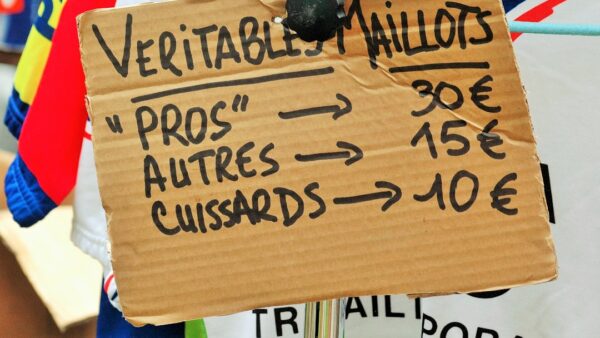 VERITABLES MAILLOTS
"PROS" → 30 €
AUTRES → 15 €
CUISSARDS → 10 €